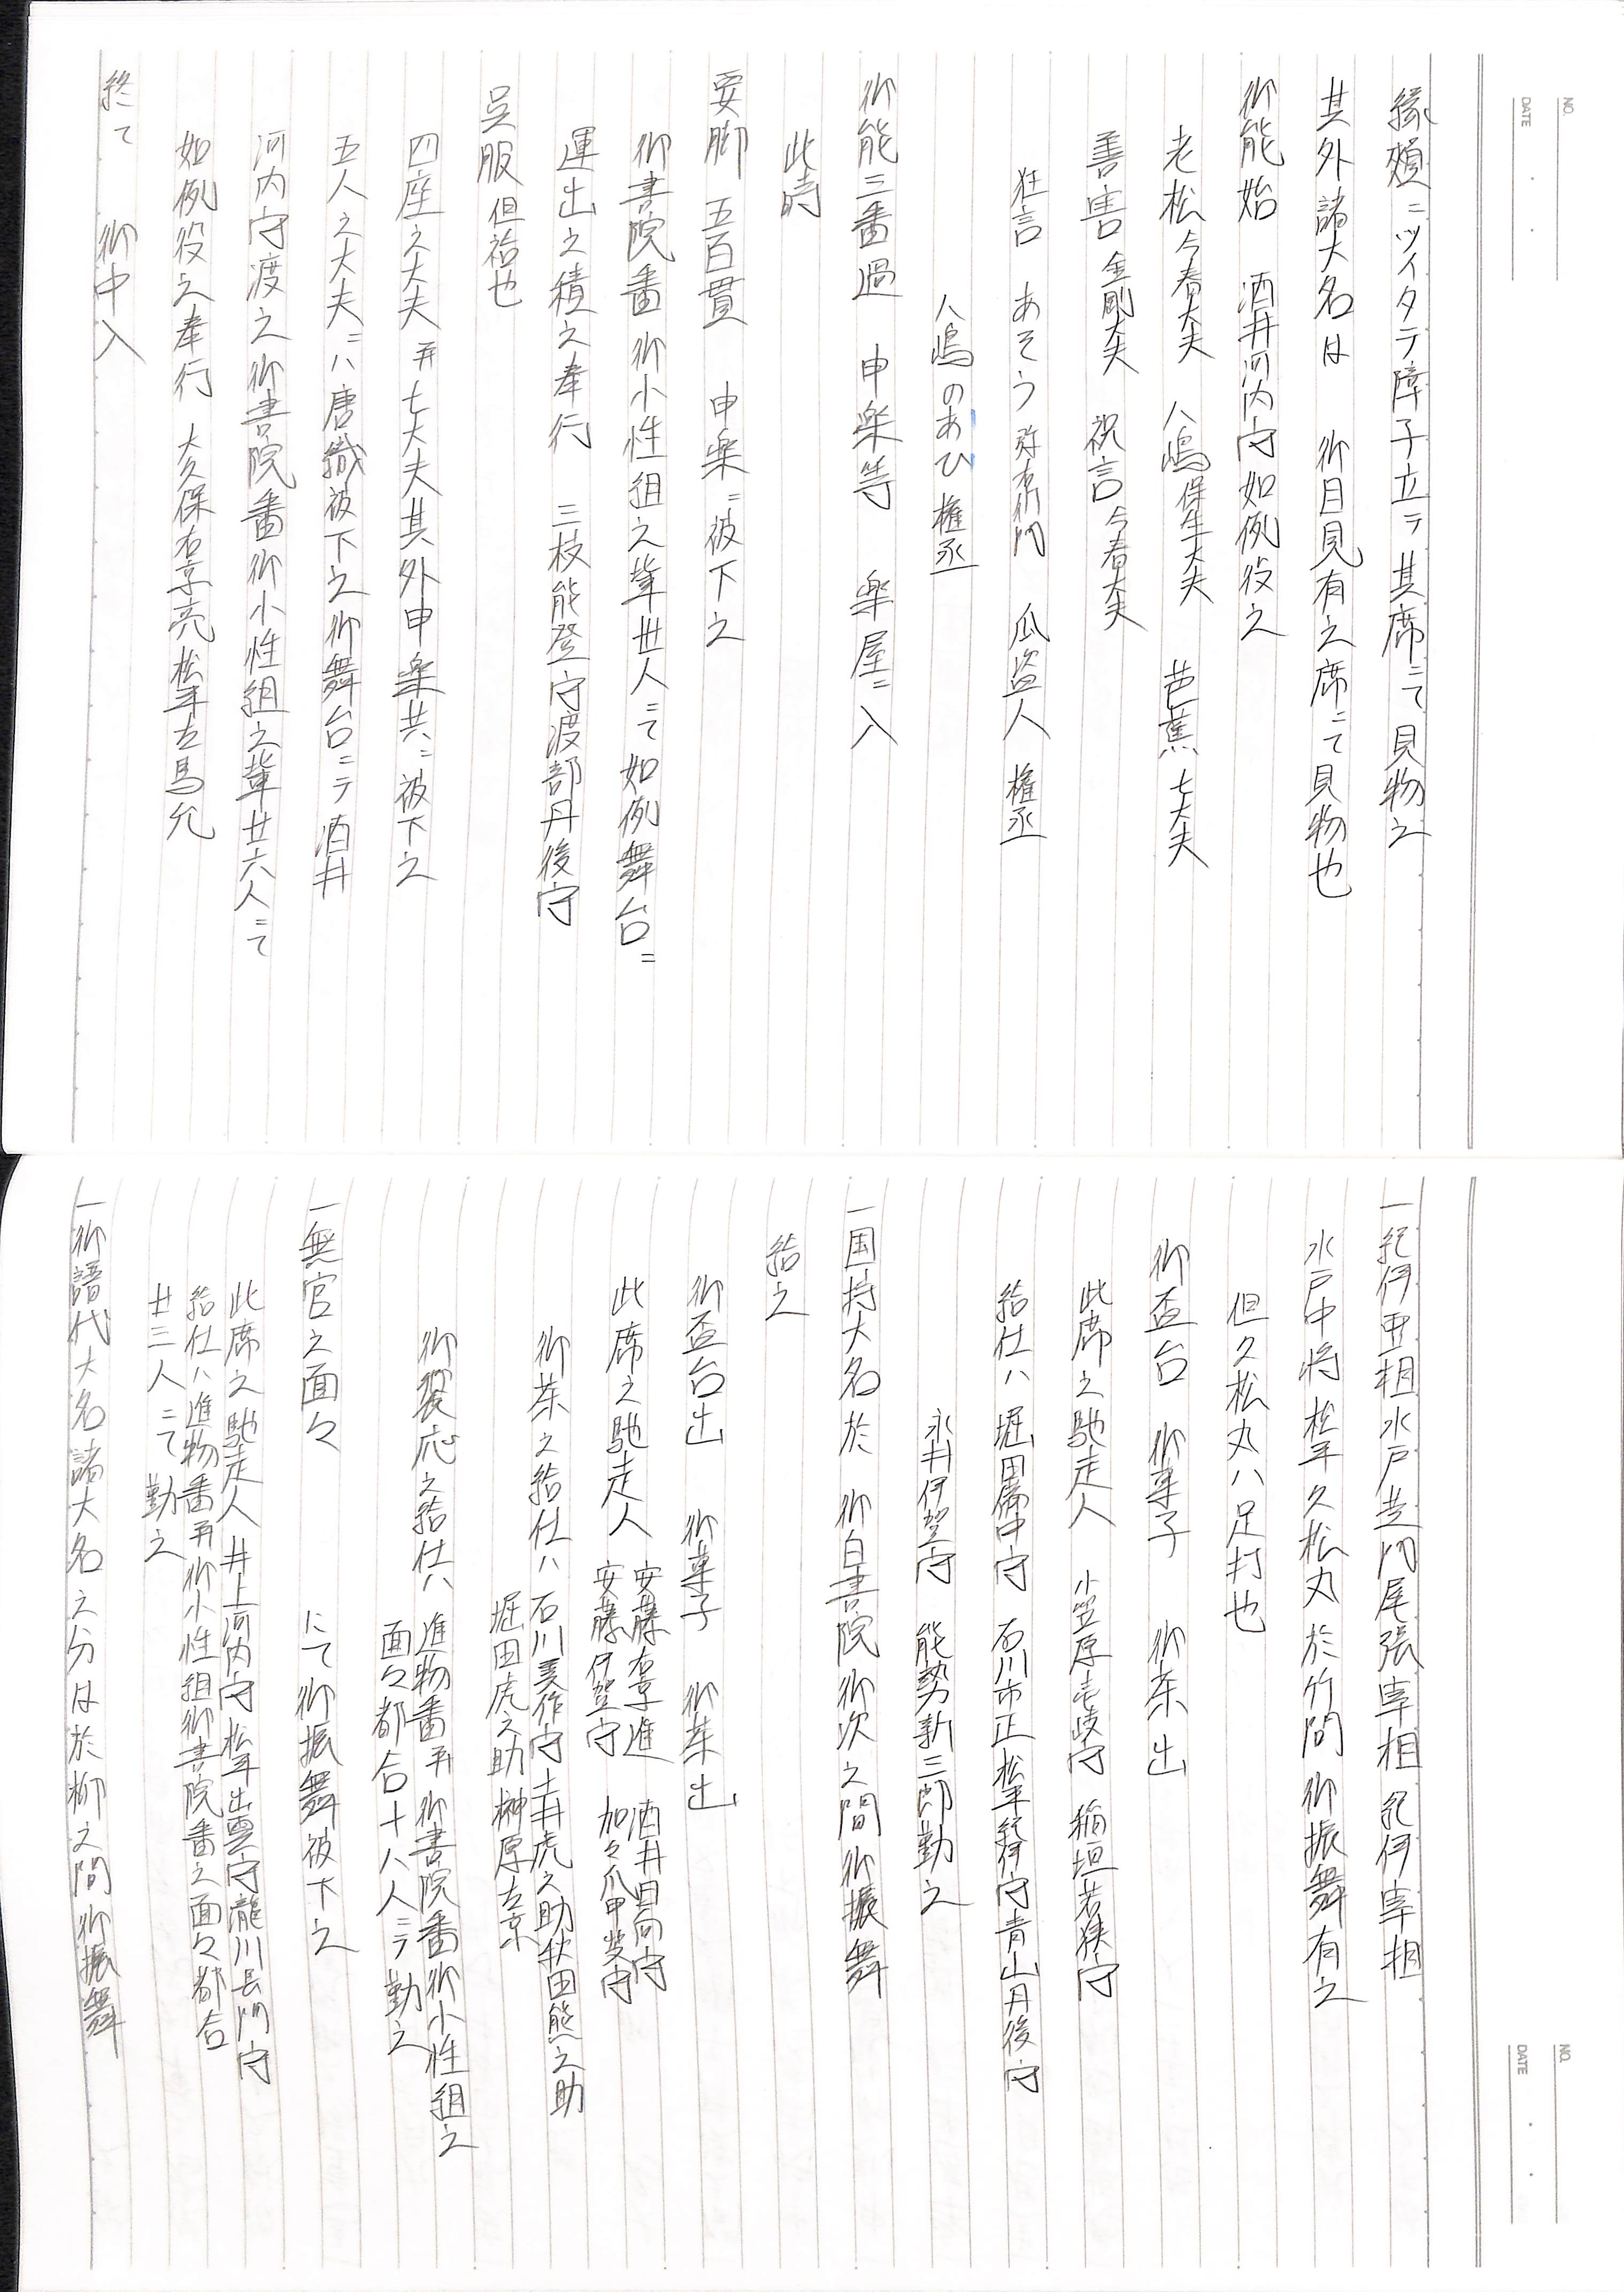 NO.
DATE
縁頬ニツイタテ障子立テ其席ニて見物之
其外諸大名は 御目見有之席ニて見物也
御能始 酒井河内守如例役之
老松 今春大夫 八嶋 保生大夫 芭蕉 七大夫
善害 金剛大夫 祝言 今春大夫
狂言 あそう 弥右衛門 瓜盗人 権丞
八嶋のあひ 権丞
御能三番過 申楽等 楽屋ニ入
此時
要脚 五百貫 申楽ニ被下之
御書院番御小性組之輩卅人ニて如例舞台ニ
運出之積之奉行 三枝能登守渡部丹後守
呉服 但袷也
四座之大夫并七大夫其外申楽共ニ被下之
五人之大夫ニハ唐織被下之御舞台ニテ酒井
河内守渡之御書院番御小性組之輩廿六人ニて
如例役之奉行 大久保右京亮松平左馬允
終て 御中入
NO.
DATE
一紀伊亜相水戸黄門尾張宰相紀伊宰相
水戸中将松平久松丸於竹間御振舞有之
但久松丸ハ足打也
御盃台 御菓子 御茶出
此席之馳走人 小笠原壱岐守 稲垣若狭守
給仕ハ堀田備中守 石川市正松平紀伊守青山丹後守
永井伊賀守 能勢新三郎勤之
一国持大名於 御白書院御次之間御振舞
給之
御盃台出 御菓子 御茶出
此席之馳走人 安藤右京進 酒井日向守
安藤伊賀守 加々爪甲斐守
御茶之給仕ハ石川美作守土井虎之助秋田熊之助
堀田虎之助榊原左京
御饗応之給仕ハ 進物番并御書院番御小性組之
面々都合十八人ニテ勤之
一無官之面々 にて御振舞被下之
此席之馳走人井上河内守松平出雲守瀧川長門守
給仕ハ進物番并御小性組御書院番之面々都合
廿三人ニて勤之
一御譜代大名諸大名之分は於柳之間御振舞